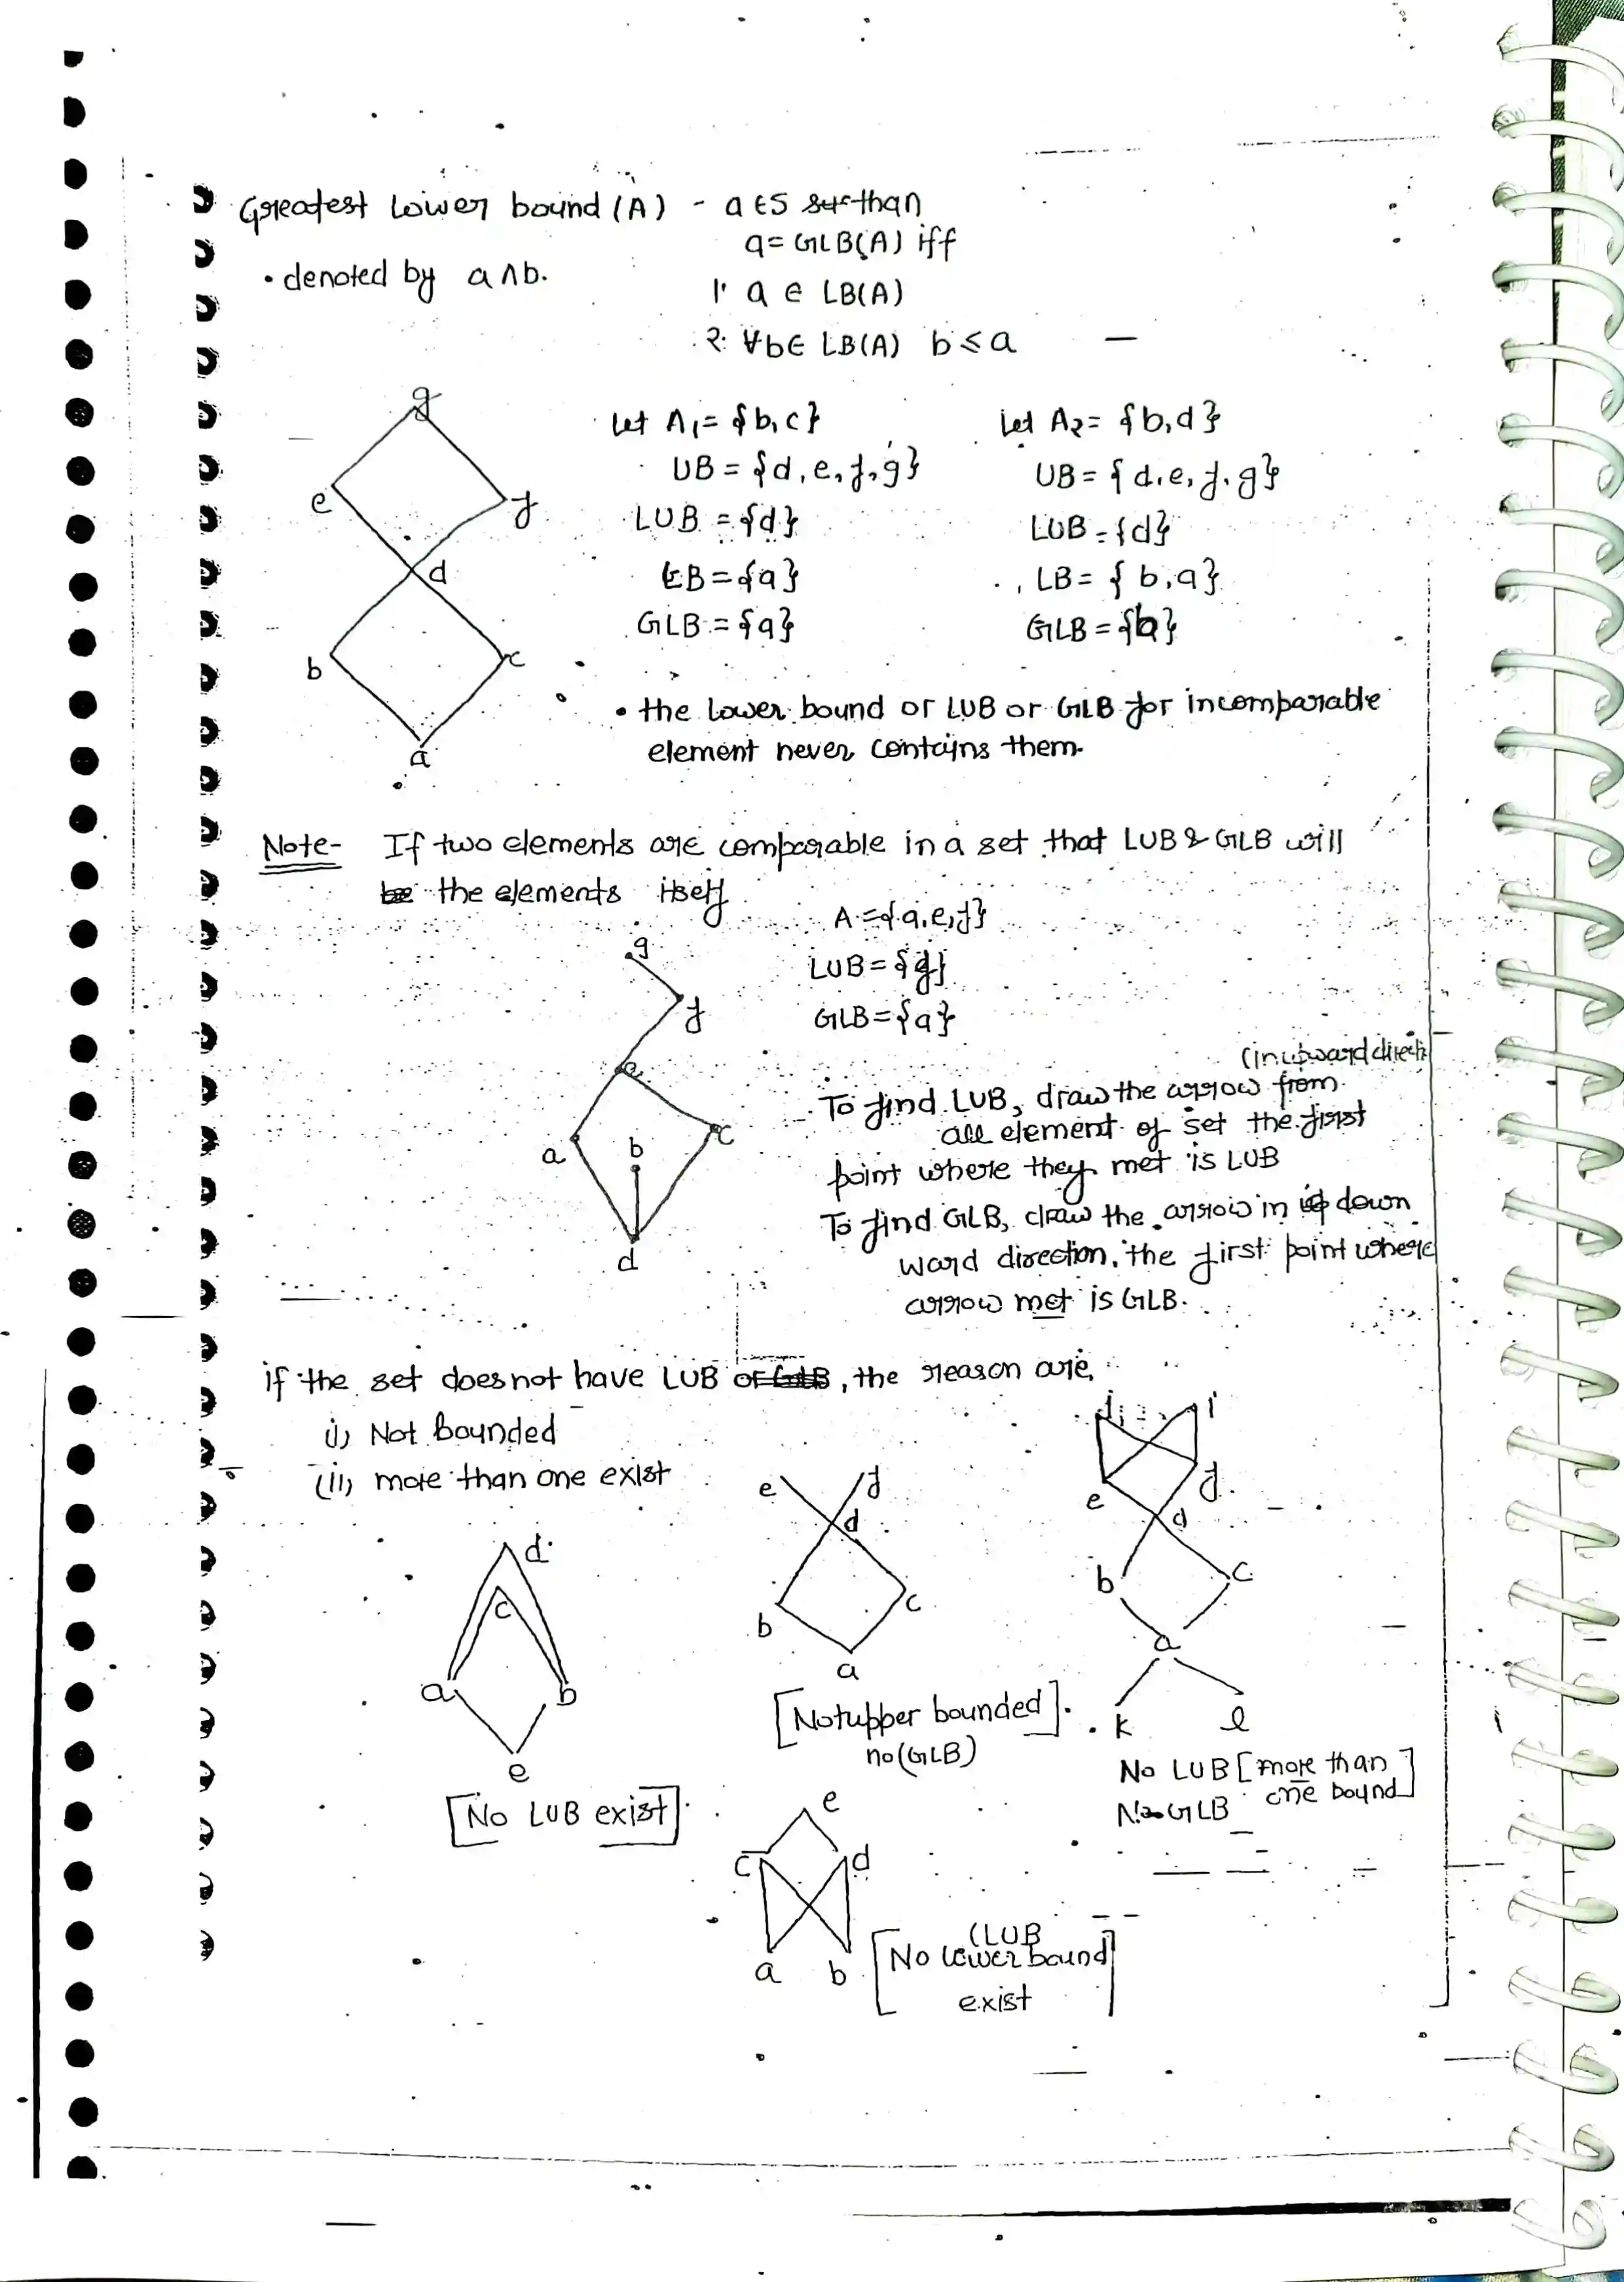 Greatest Lower bound (A) - a ∈ S such than
a = GLB(A) iff
• denoted by a ∧ b.
1. a ∈ LB(A)
2. ∀b ∈ LB(A) b ≤ a
g
e
f
d
b
c
a
Let A1 = {b, c}
UB = {d, e, f, g}
LUB = {d}
LB = {a}
GLB = {a}
Let A2 = {b, d}
UB = {d, e, f, g}
LUB = {d}
LB = {b, a}
GLB = {b}
• the lower bound or LUB or GLB for incomparable
element never contains them.
Note- If two elements are comparable in a set that LUB & GLB will
be the elements itself
A = {a, e, f}
LUB = {f}
GLB = {a}
g
f
e
a
b
c
d
(in upward directi
To find LUB, draw the arrow from
all element of set the first
point where they met is LUB
To find GLB, draw the arrow in down
ward direction, the first point where
arrow met is GLB.
if the set does not have LUB or GLB, the reason are,
(i) Not bounded
(ii) more than one exist
d
c
a
b
e
[No LUB exist]
e
f
d
b
c
a
[Not upper bounded]
no (GLB)
j
i
e
f
d
b
c
a
k
l
No LUB [more than
one bound]
No GLB
e
c
d
a
b
(LUB
[No lower bound
exist]